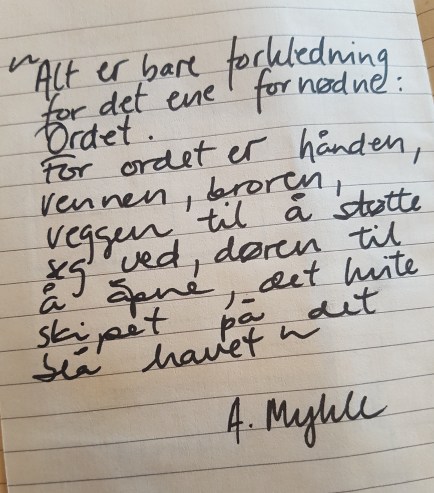 ~Alt er bare forkledning
for det ene fornødne:
Ordet.
For ordet er hånden,
vennen, broren,
veggen til å støtte
seg ved, døren til
å åpne, det hvite
skipet på det
blå havet ~
A. Myhle